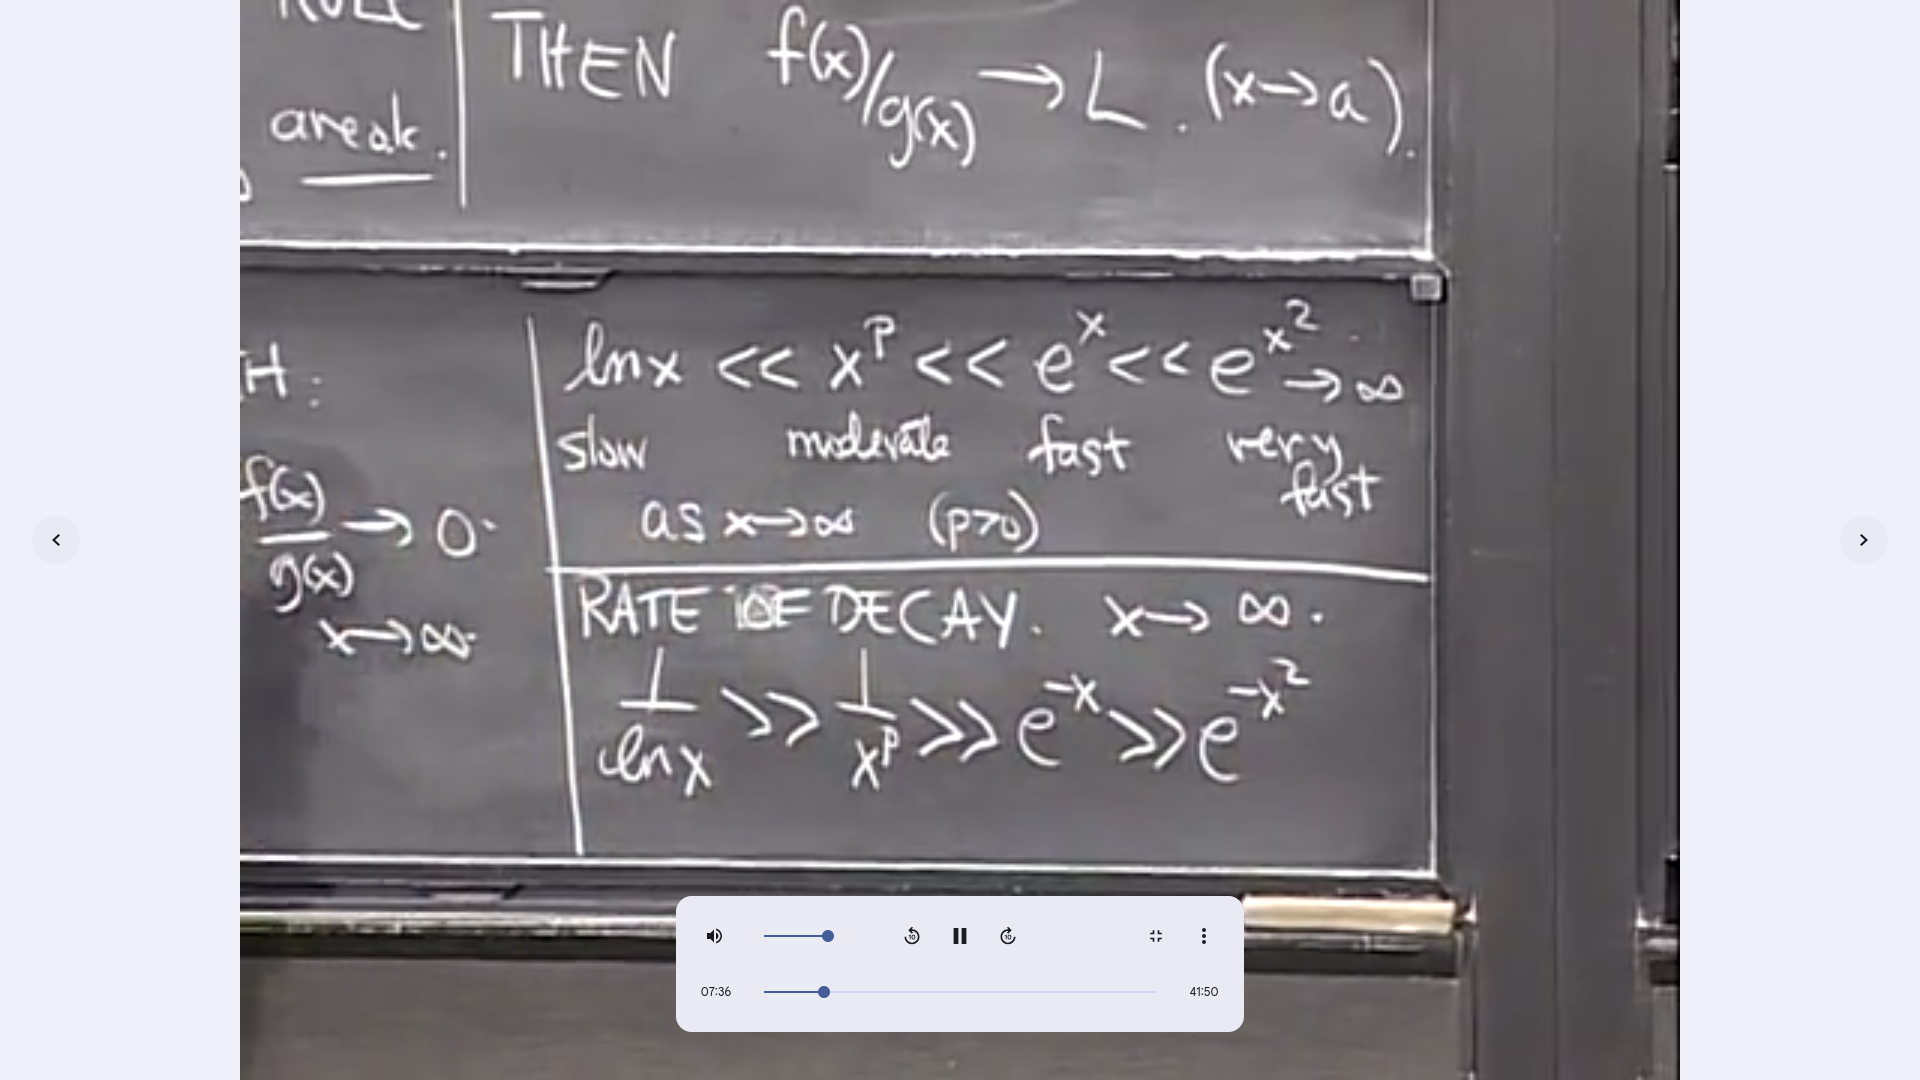 THEN f(x)/g(x) → L. (x→a).
areok.
H:
f(x)/g(x) → 0.
x→∞.
ln x << x^p << e^x << e^x^2 → ∞
slow moderate fast very fast
as x→∞ (p>0)
RATE OF DECAY. x→ ∞.
1/ln x >> 1/x^p >> e^-x >> e^-x^2
07:36
41:50